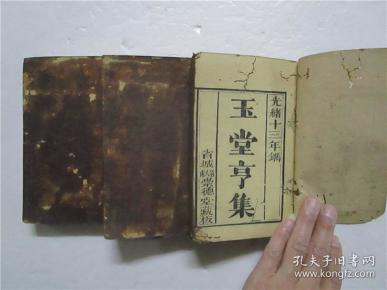 光緒十三年鐫
玉堂亨集
省城福芸樓崇德堂藏板
孔夫子旧书网